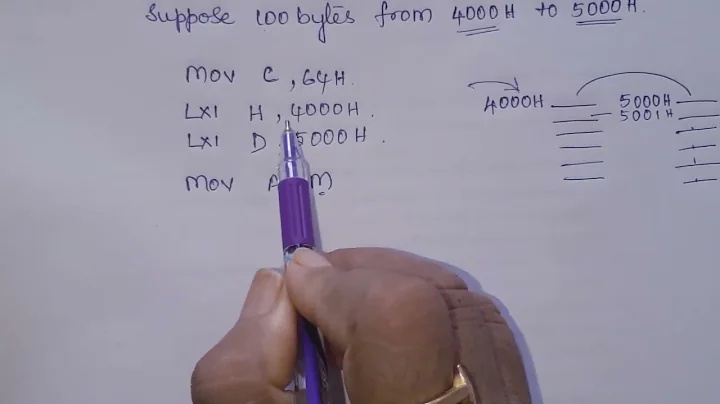 Suppose 100 bytes from 4000H to 5000H.
MOV C, 64H.
LXI H, 4000H.
LXI D, 5000H.
MOV A M
4000H 5000H
5001H